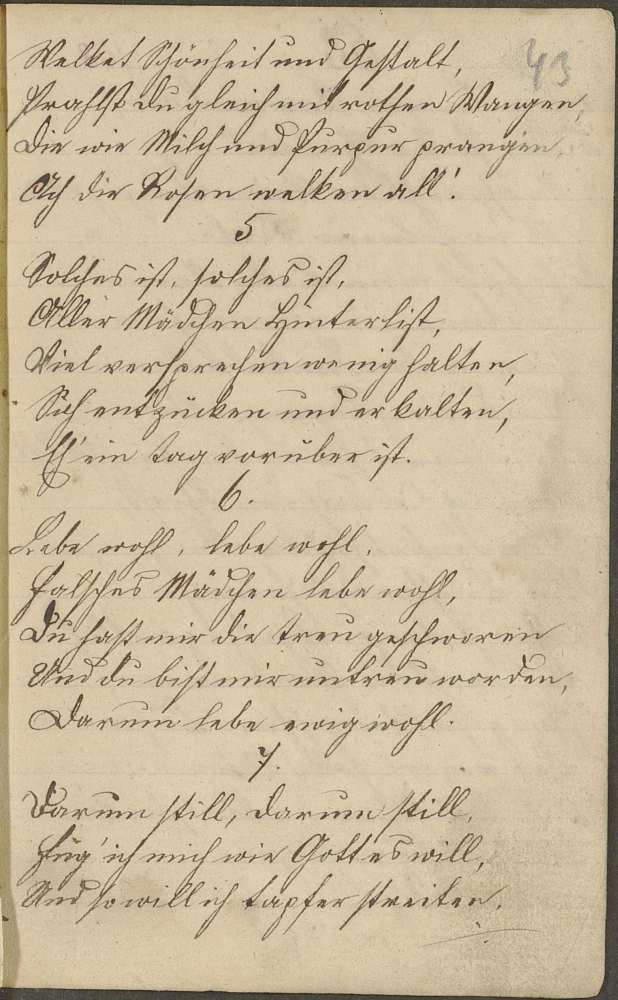 43
Welket Schönheit und Gestalt,
Prahlst du gleich mit rothen Wangen,
Die wie Milch und Purpur prangen,
Ach die Rosen welken all'.
5
Solches ist, solches ist,
Aller Mädchen Hinterlist,
Viel versprechen wenig halten,
Sich entzücken und erkalten,
Eh' ein tag vorüber ist.
6.
Lebe wohl, lebe wohl,
Falsches Mädchen lebe wohl,
Du hast mir die treu geschworen
Und du bist mir untreu worden,
Darum lebe ewig wohl.
7.
Darum still, darum still,
Füg' ich mich wie Gott es will,
Und so will ich tapfer streiten.